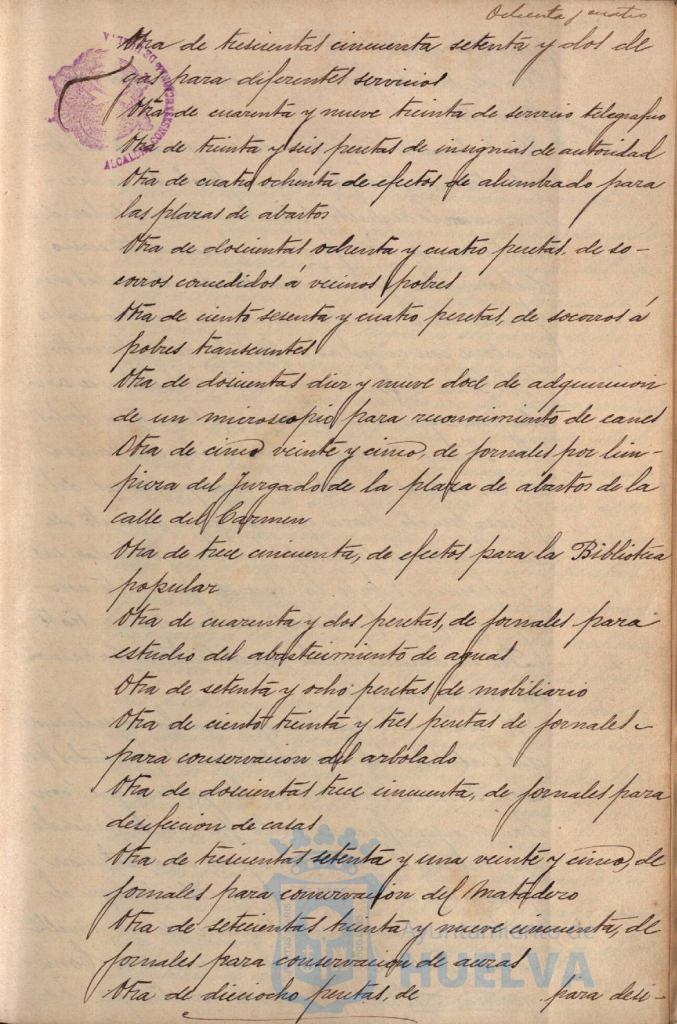 Ochenta y cuatro
Otra de trescientas cincuenta setenta y dos de
gas para diferentes servicios
Otra de cuarenta y nueve treinta de servicio telegrafico
Otra de treinta y seis pesetas de insignias de autoridad
Otra de cuatro ochenta de efectos de alumbrado para
las plazas de abastos
Otra de doscientas ochenta y cuatro pesetas, de so-
corros concedidos á vecinos pobres
Otra de ciento sesenta y cuatro pesetas, de socorros á
pobres transeuntes
Otra de doscientas diez y nueve doce de adquisicion
de un microscopio para reconocimiento de canes
Otra de cinco veinte y cinco, de jornales por lim-
pieza del Juzgado de la plaza de abastos de la
calle del Carmen
Otra de trece cincuenta, de efectos para la Biblioteca
popular
Otra de cuarenta y dos pesetas, de jornales para
estudio del abastecimiento de aguas
Otra de setenta y ocho pesetas de mobiliario
Otra de ciento treinta y tres pesetas de jornales
para conservacion del arbolado
Otra de doscientas trece cincuenta, de jornales para
desifeccion de casas
Otra de trescientas setenta y una veinte y cinco, de
jornales para conservacion del Matadero
Otra de setecientas treinta y nueve cincuenta, de
jornales para conservacion de aceras
Otra de dieciocho pesetas, de para desi-
ALCALDIA
Ayuntamiento de
HUELVA